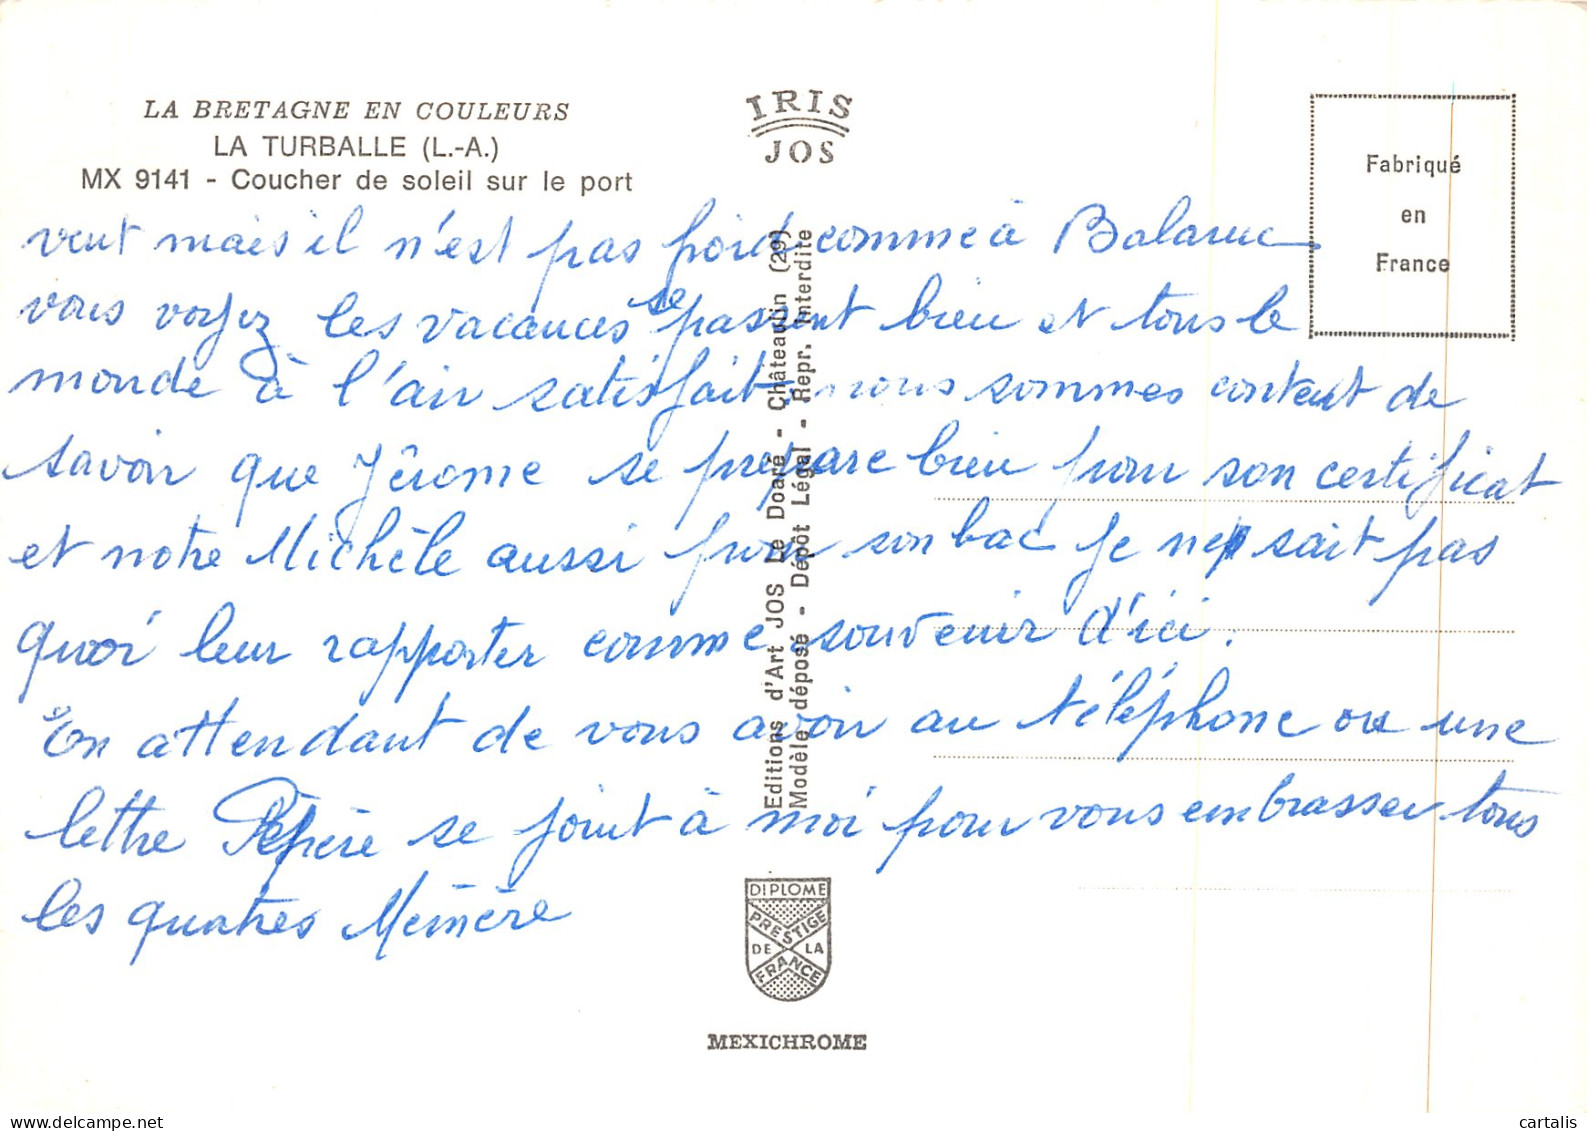 LA BRETAGNE EN COULEURS
LA TURBALLE (L.-A.)
MX 9141 - Coucher de soleil sur le port
IRIS
JOS
Fabriqué
en
France
vent mais il n'est pas froid comme à Balaruc
vous voyez les vacances se passent bien et tous le
monde à l'air satisfait. nous sommes content de
savoir que Jérome se prépare bien pour son certificat
et notre Michèle aussi pour son bac je ne sait pas
quoi leur rapporter comme souvenir d'ici.
En attendant de vous avoir au téléphone ou une
lettre Pépère se joint à moi pour vous embrasser tous
les quatres Mémère
Editions d'Art JOS Le Doaré - Châteaulin (29)
Modèle déposé - Dépôt Légal - Repr. Interdite
DIPLOME
PRESTIGE
DE LA
FRANCE
MEXICHROME
www.delcampe.net
cartalis